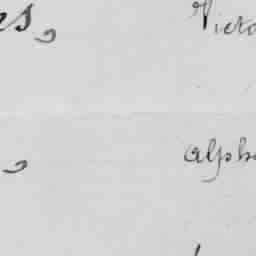 es, Victo
, alpho